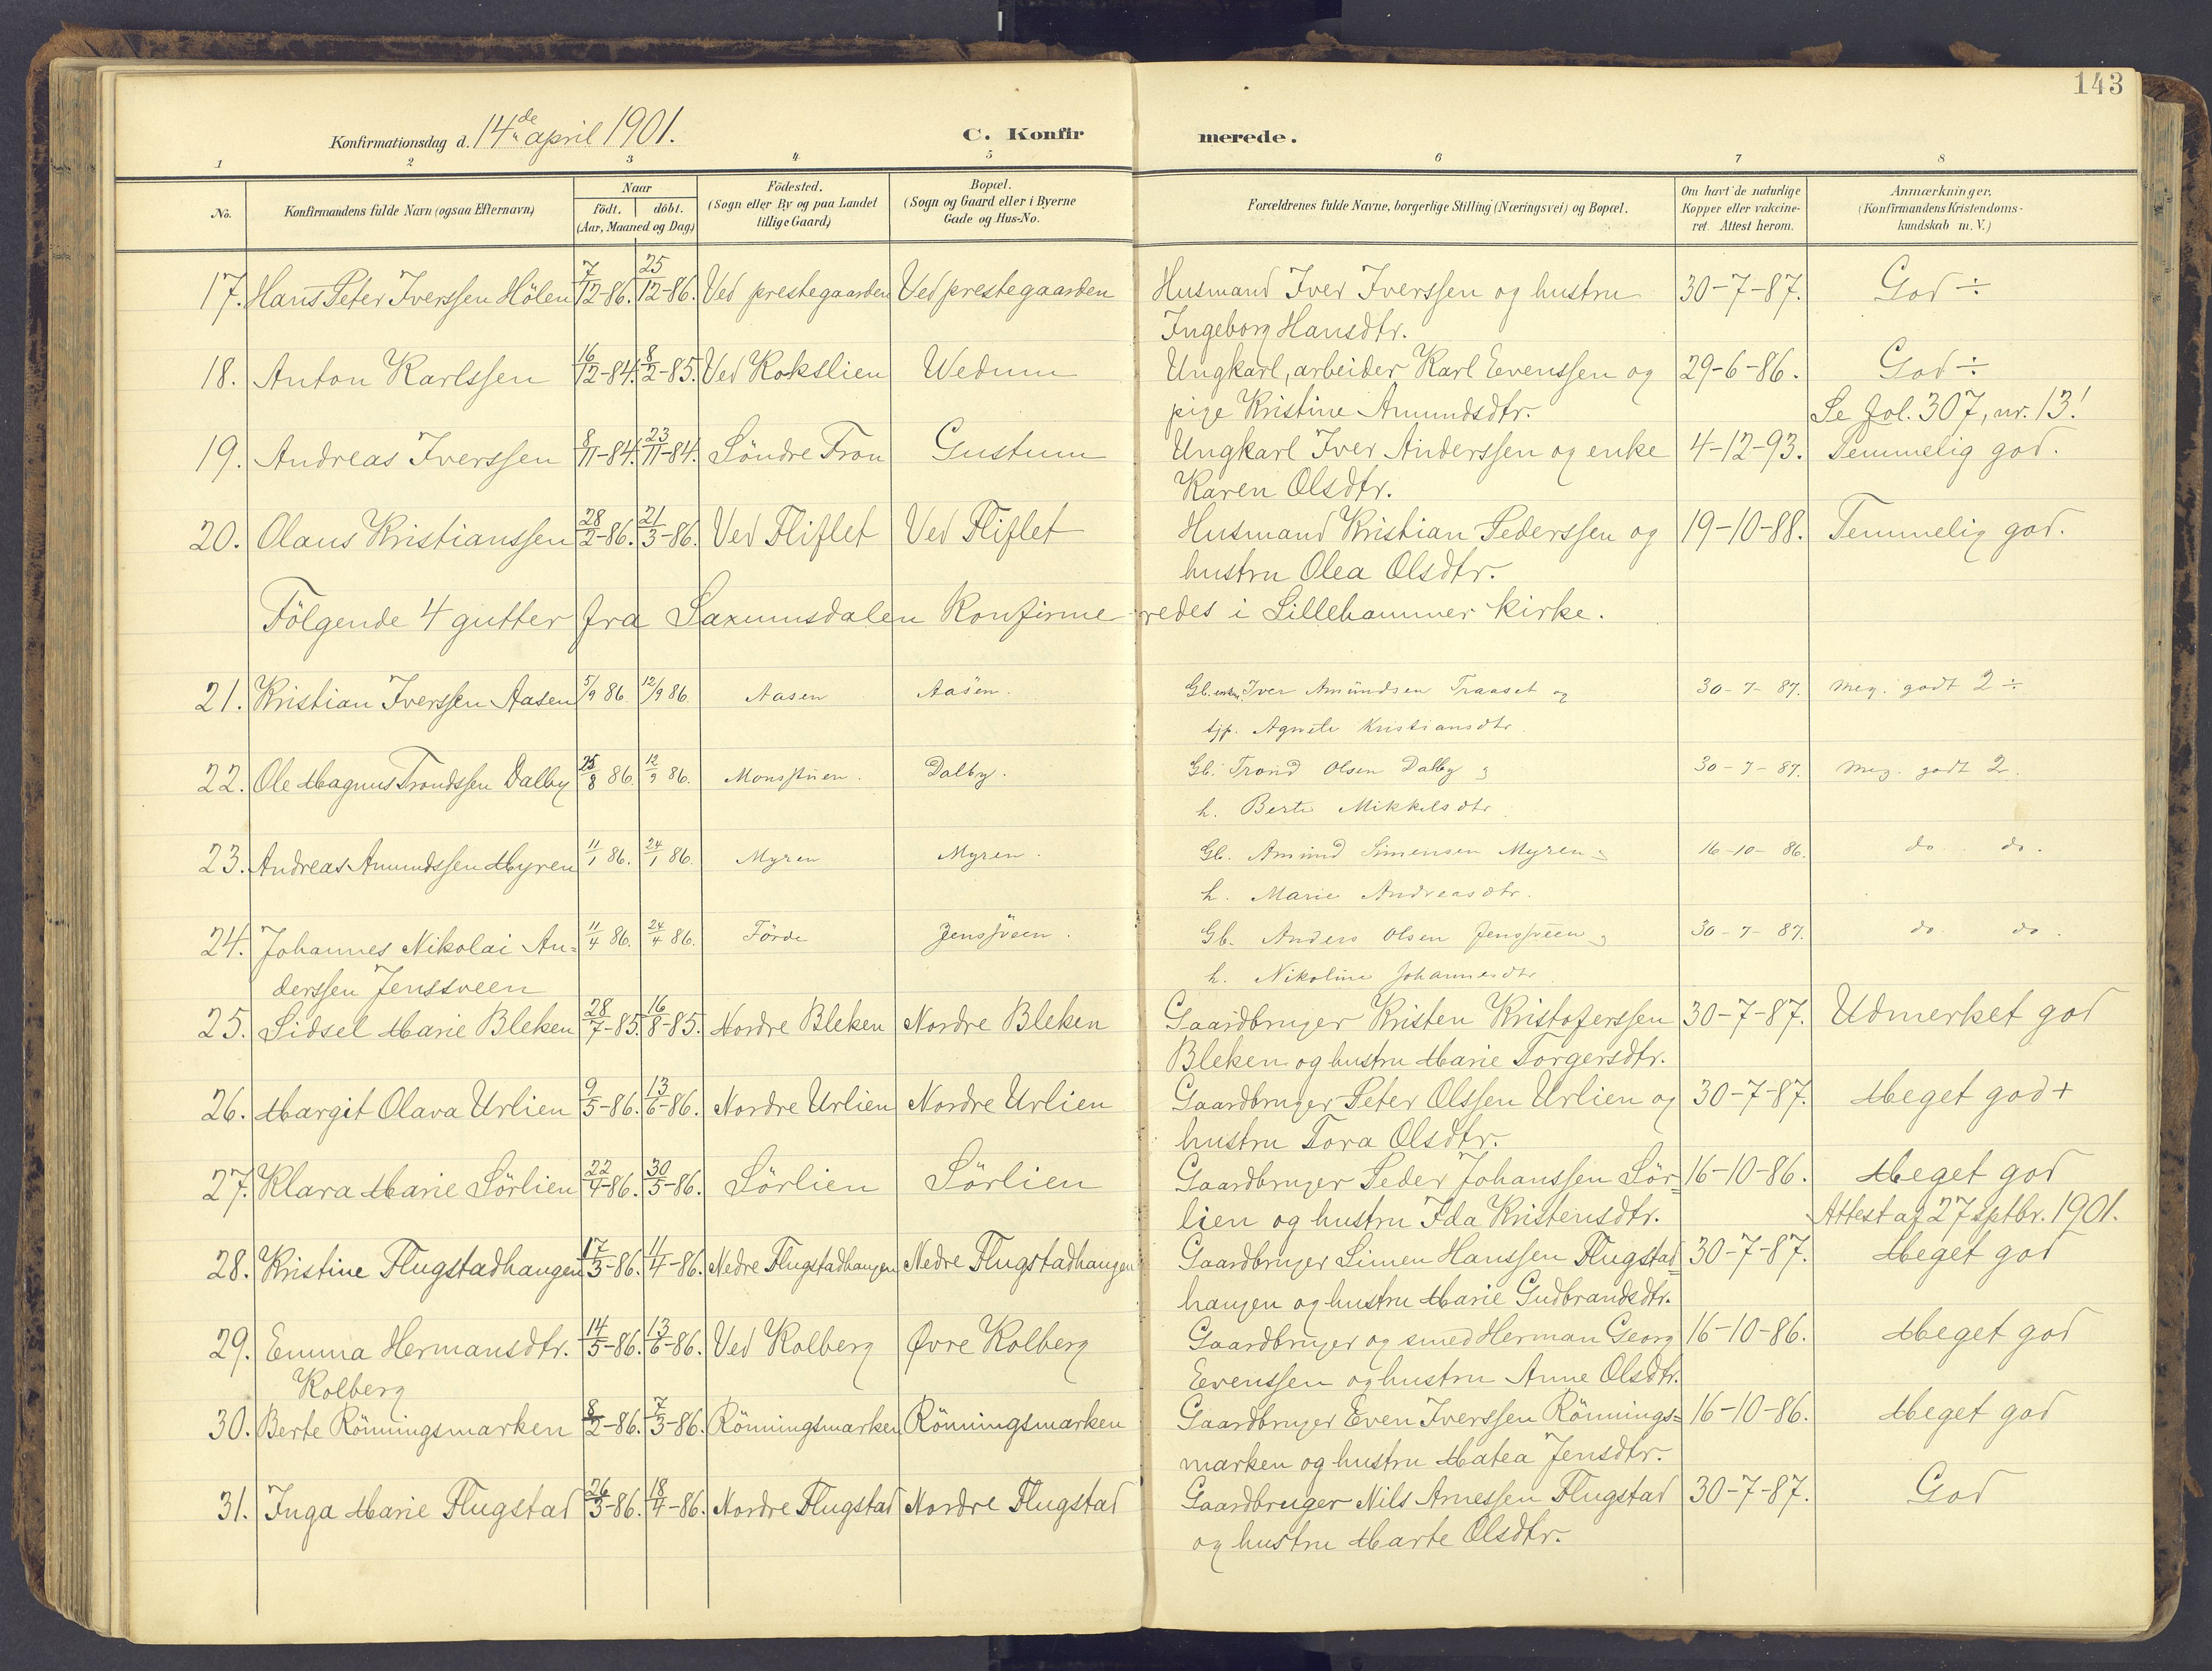 143
Konfirmationsdag d. 14de april 1901.
C. Konfirmerede.
1 2 3 4 5 6 7 8
No.
Konfirmandens fulde Navn (ogsaa Efternavn)
Naar
födt. döbt.
(Aar, Maaned og Dag)
Födested.
(Sogn eller By og paa Landet
tillige Gaard)
Bopæl.
(Sogn og Gaard eller i Byerne
Gade og Hus-No.
Forældrenes fulde Navne, borgerlige Stilling (Næringsvei) og Bopæl.
Om havt de naturlige
Kopper eller vakcine-
ret. Attest herom.
Anmærkninger.
(Konfirmandens Kristendoms-
kundskab m. V.)
17. Hans Peter Iverssen Hölen 7/12-86. 25/12-86. Ved prestegaarden Ved prestegaarden Husmand Iver Iverssen og hustru 30-7-87. God ÷
Ingeborg Hansdtr.
18. Anton Karlssen 16/12-84. 8/2-85. Ved Rokslien Wedum Ungkarl, arbeider Karl Evenssen og 29-6-86. God ÷
pige Kristine Amundsdtr. Se fol. 307, nr. 13!
19. Andreas Iverssen 8/11-84. 23/11-84. Söndre Fron Gustum Ungkarl Iver Anderssen og enke 4-12-93. Temmelig god.
Karen Olsdtr.
20. Olaus Kristianssen 28/2-86. 21/3-86. Ved Fliflet Ved Fliflet Husmand Kristian Pederssen og 19-10-88. Temmelig god.
hustru Olea Olsdtr.
Fölgende 4 gutter fra Saxumsdalen Konfirmeredes i Lillehammer kirke.
21. Kristian Iverssen Aasen 5/9 86 12/9 86. Aasen Aasen. Gb. Iver Amundsen Traaset og 30-7-87. meg. godt 2 ÷
Agnete Kristiansdtr.
22. Ole Magnus Trondssen Dalby 25/8 86. 12/9 86. Monsstuen. Dalby. Gb. Trond Olsen Dalby og 30-7-87. meg. godt 2.
h. Berte Mikkelsdtr.
23. Andreas Amundssen Myren 11/1 86. 24/1 86. Myren Myren. Gb. Amund Simensen Myren og 16-10-86. do. do.
h. Marie Andreasdtr.
24. Johannes Nikolai An= 11/4 86. 24/4 86. Förde Jenssveen. Gb. Anders Olsen Jenssveen og 30-7-87. do. do.
derssen Jenssveen h. Nikoline Johannesdtr
25. Sidsel Marie Bleken 28/7-85. 16/8-85. Nordre Bleken Nordre Bleken Gaardbruger Kristen Kristoferssen 30-7-87. Udmerket god
Bleken og hustru Marie Torgersdtr.
26. Margit Olava Urlien 9/5-86. 13/6-86. Nordre Urlien Nordre Urlien Gaardbruger Peter Olssen Urlien og 30-7-87. Meget god +
hustru Tora Olsdtr.
27. Klara Marie Sörlien 22/4-86. 30/5-86. Sörlien Sörlien Gaardbruger Peder Johanssen Sör= 16-10-86. Meget god
lien og hustru Ida Kristensdtr. Attest af 27 sptbr. 1901.
28. Kristine Flugstadhaugen 17/3-86. 11/4-86. Nedre Flugstadhaugen Nedre Flugstadhaugen Gaardbruger Simen Hanssen Flugstad= 30-7-87. Meget god
haugen og hustru Marie Gudbrandsdtr.
29. Emma Hermansdtr. 14/5-86. 13/6-86. Ved Kolberg Øvre Kolberg Gaardbruger og smed Herman Georg 16-10-86. Meget god
Kolberg Evenssen og hustru Anne Olsdtr.
30. Berte Rönningsmarken 8/2-86. 7/3-86. Rönningsmarken Rönningsmarken Gaardbruger Even Iverssen Rönnings= 16-10-86. Meget god
marken og hustru Matea Jensdtr.
31. Inga Marie Flugstad 26/3-86. 18/4-86. Nordre Flugstad Nordre Flugstad Gaardbruger Nils Arnessen Flugstad 30-7-87. God
og hustru Marte Olsdtr.